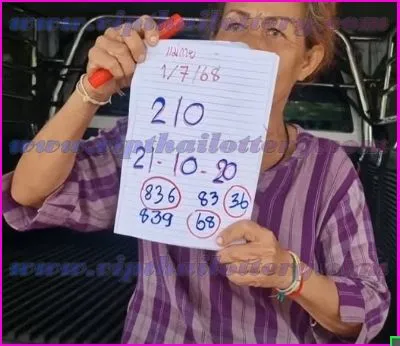 www.vipthailottery.com
แม่ทาย
1/7/68
210
www.vipthailottery.com
21-10-20
836 83 36
839 68
www.vipthailottery.com